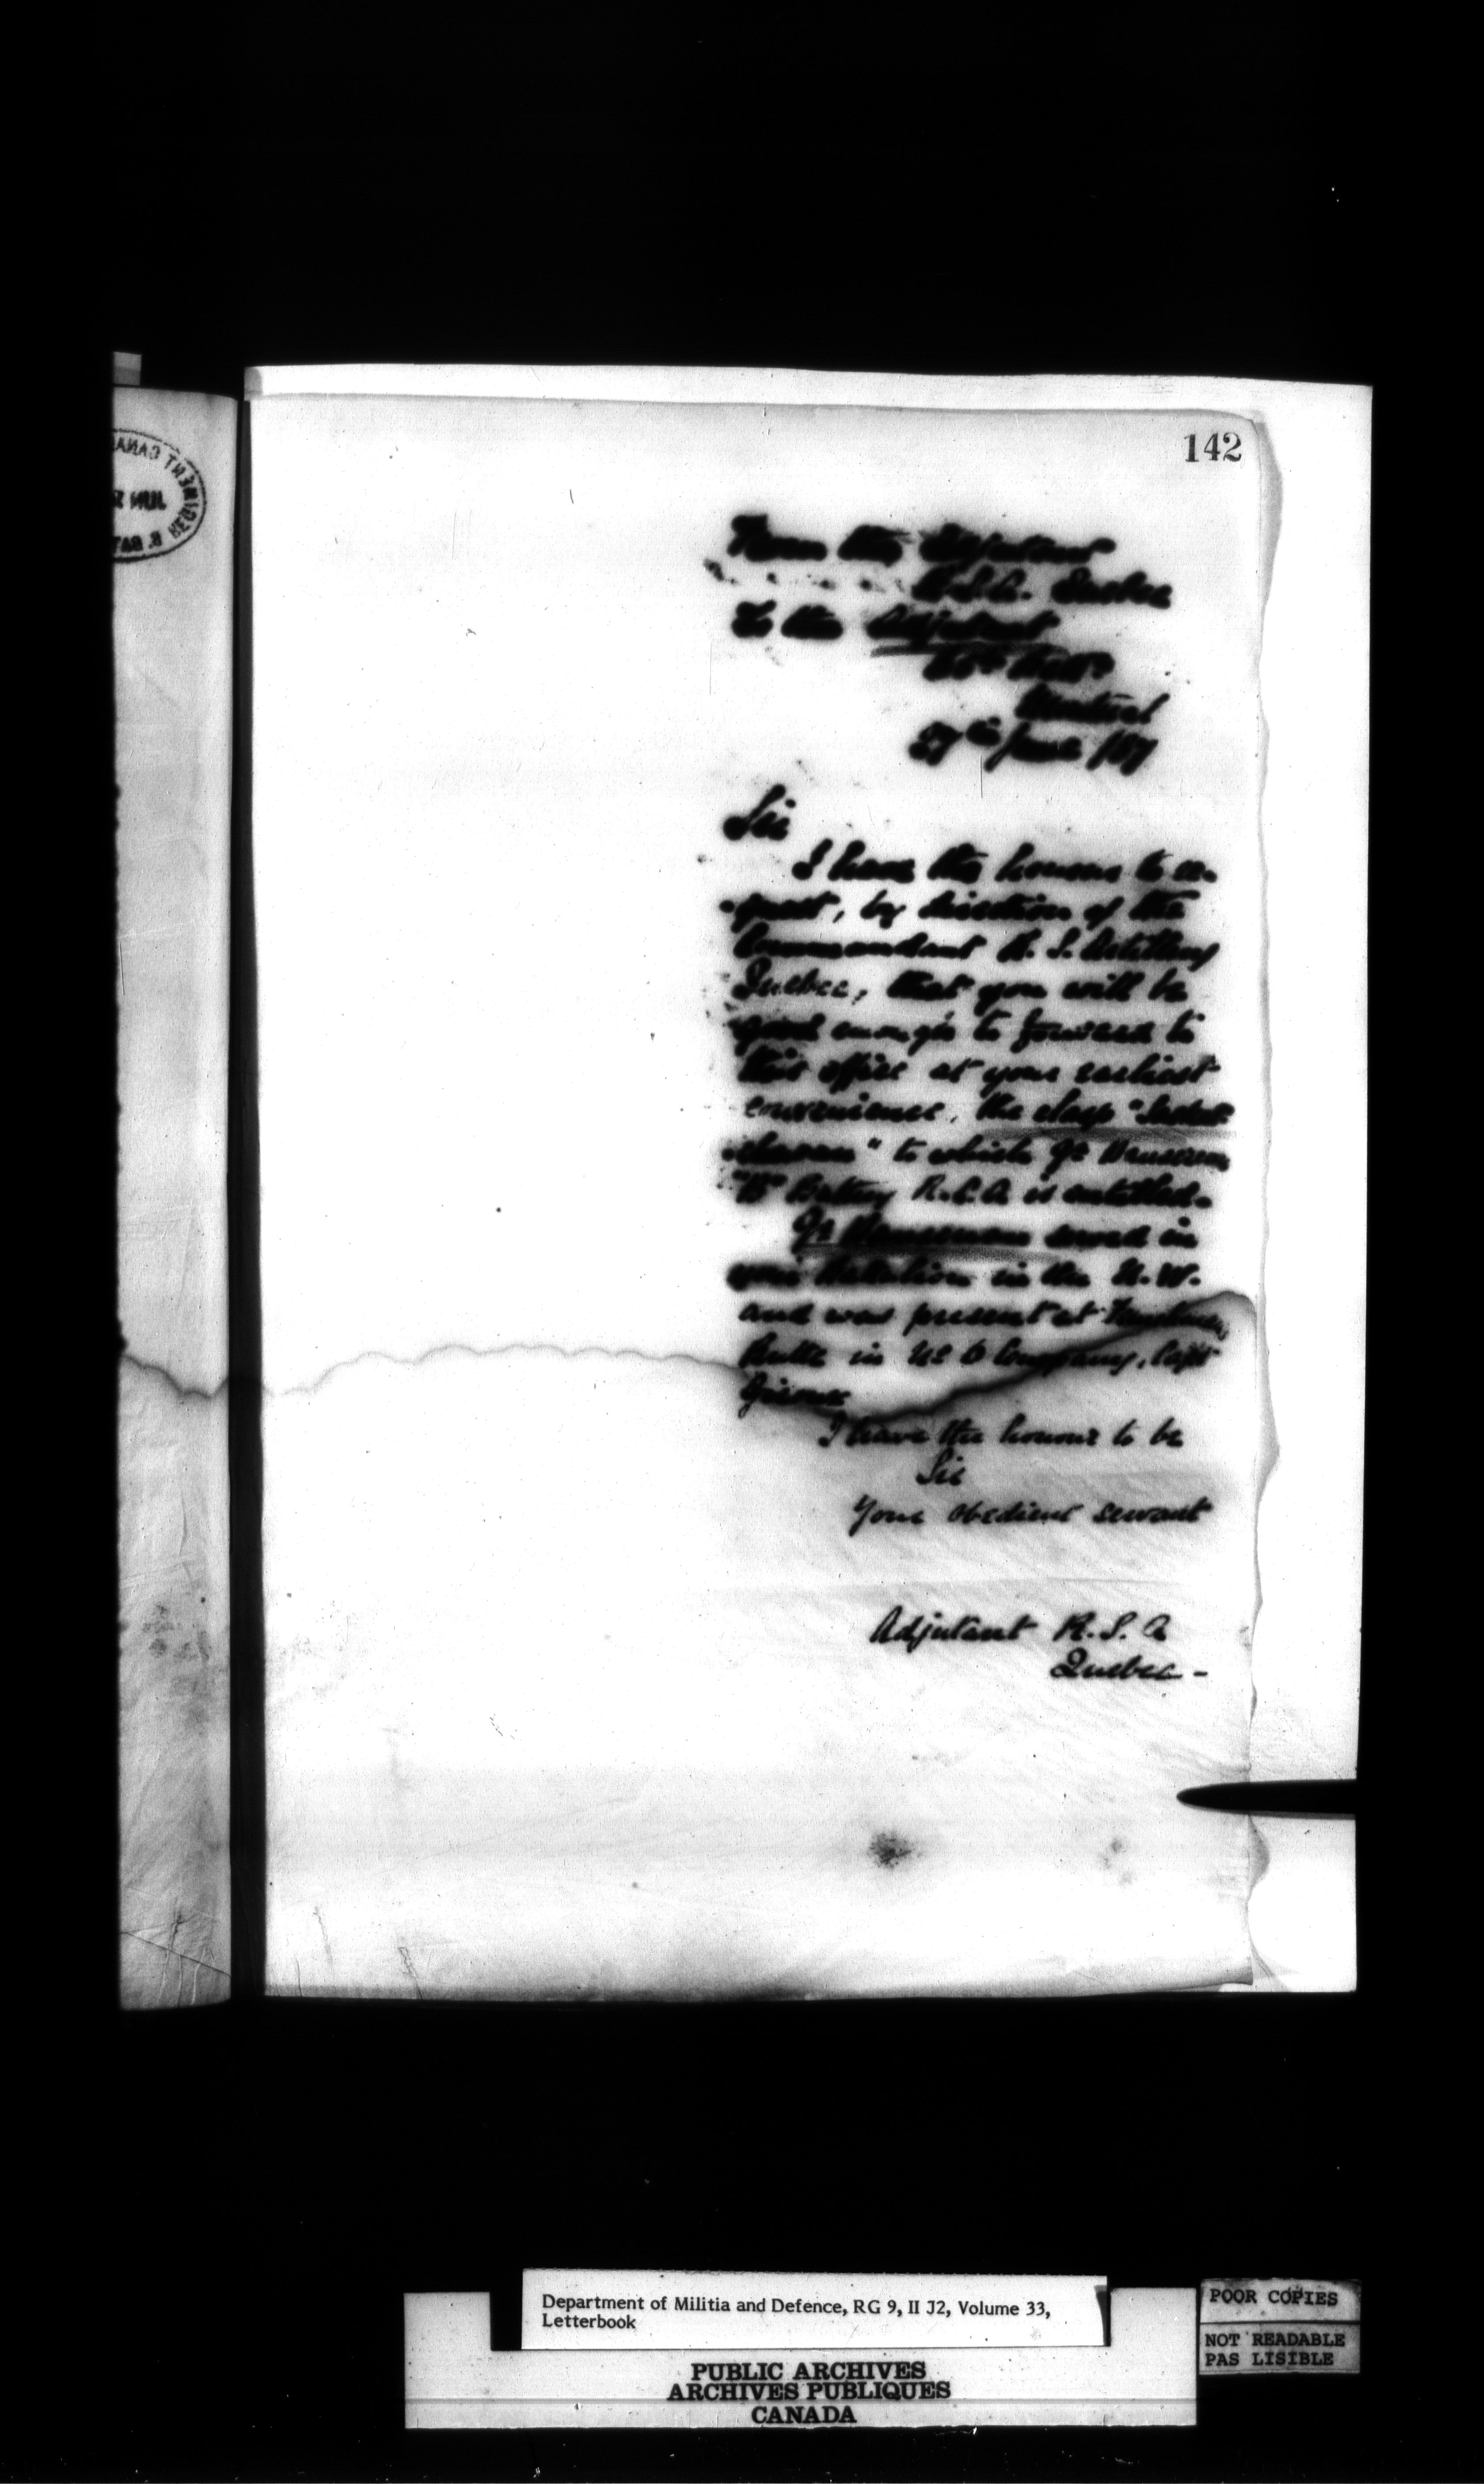 142
From the Adjutant
R.S.A. Quebec
To the Adjutant
65th Batt?
Montreal
27th June /87
Sir
I have the honour to re-
-quest, by direction of the
Commandant R. S. Artillery
Quebec, that you will be
good enough to forward to
this office at your earliest
convenience, the clasp "Saskat-
-chewan" to which Gr
"B" Battery R.C.A. is entitled.
Gr served in
your Battalion in the N.W.
and was present at Frenchman's
Butte in No 6 Company, Capt
Giroux
I have the honour to be
Sir
Your obedient servant
Adjutant R.S.A
Quebec -
Department of Militia and Defence, RG 9, II J2, Volume 33,
Letterbook
POOR COPIES
NOT READABLE
PAS LISIBLE
PUBLIC ARCHIVES
ARCHIVES PUBLIQUES
CANADA